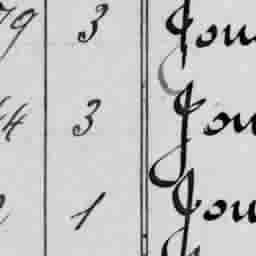 79 3 Jou
44 3 Jou
1 Jou